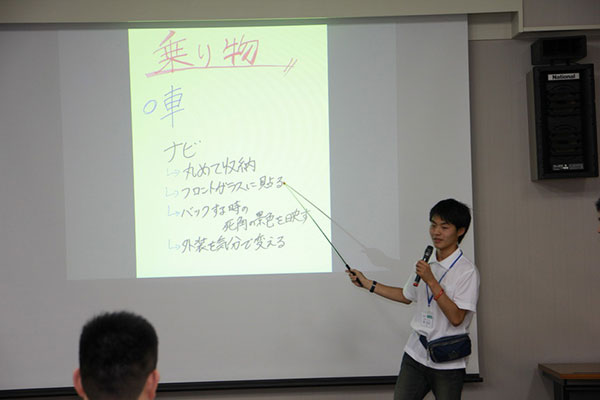 乗り物
○車
ナビ
↳丸めて収納
↳フロントガラスに貼る
↳バックする時の
死角の景色を映す
↳外装を気分で変える
National